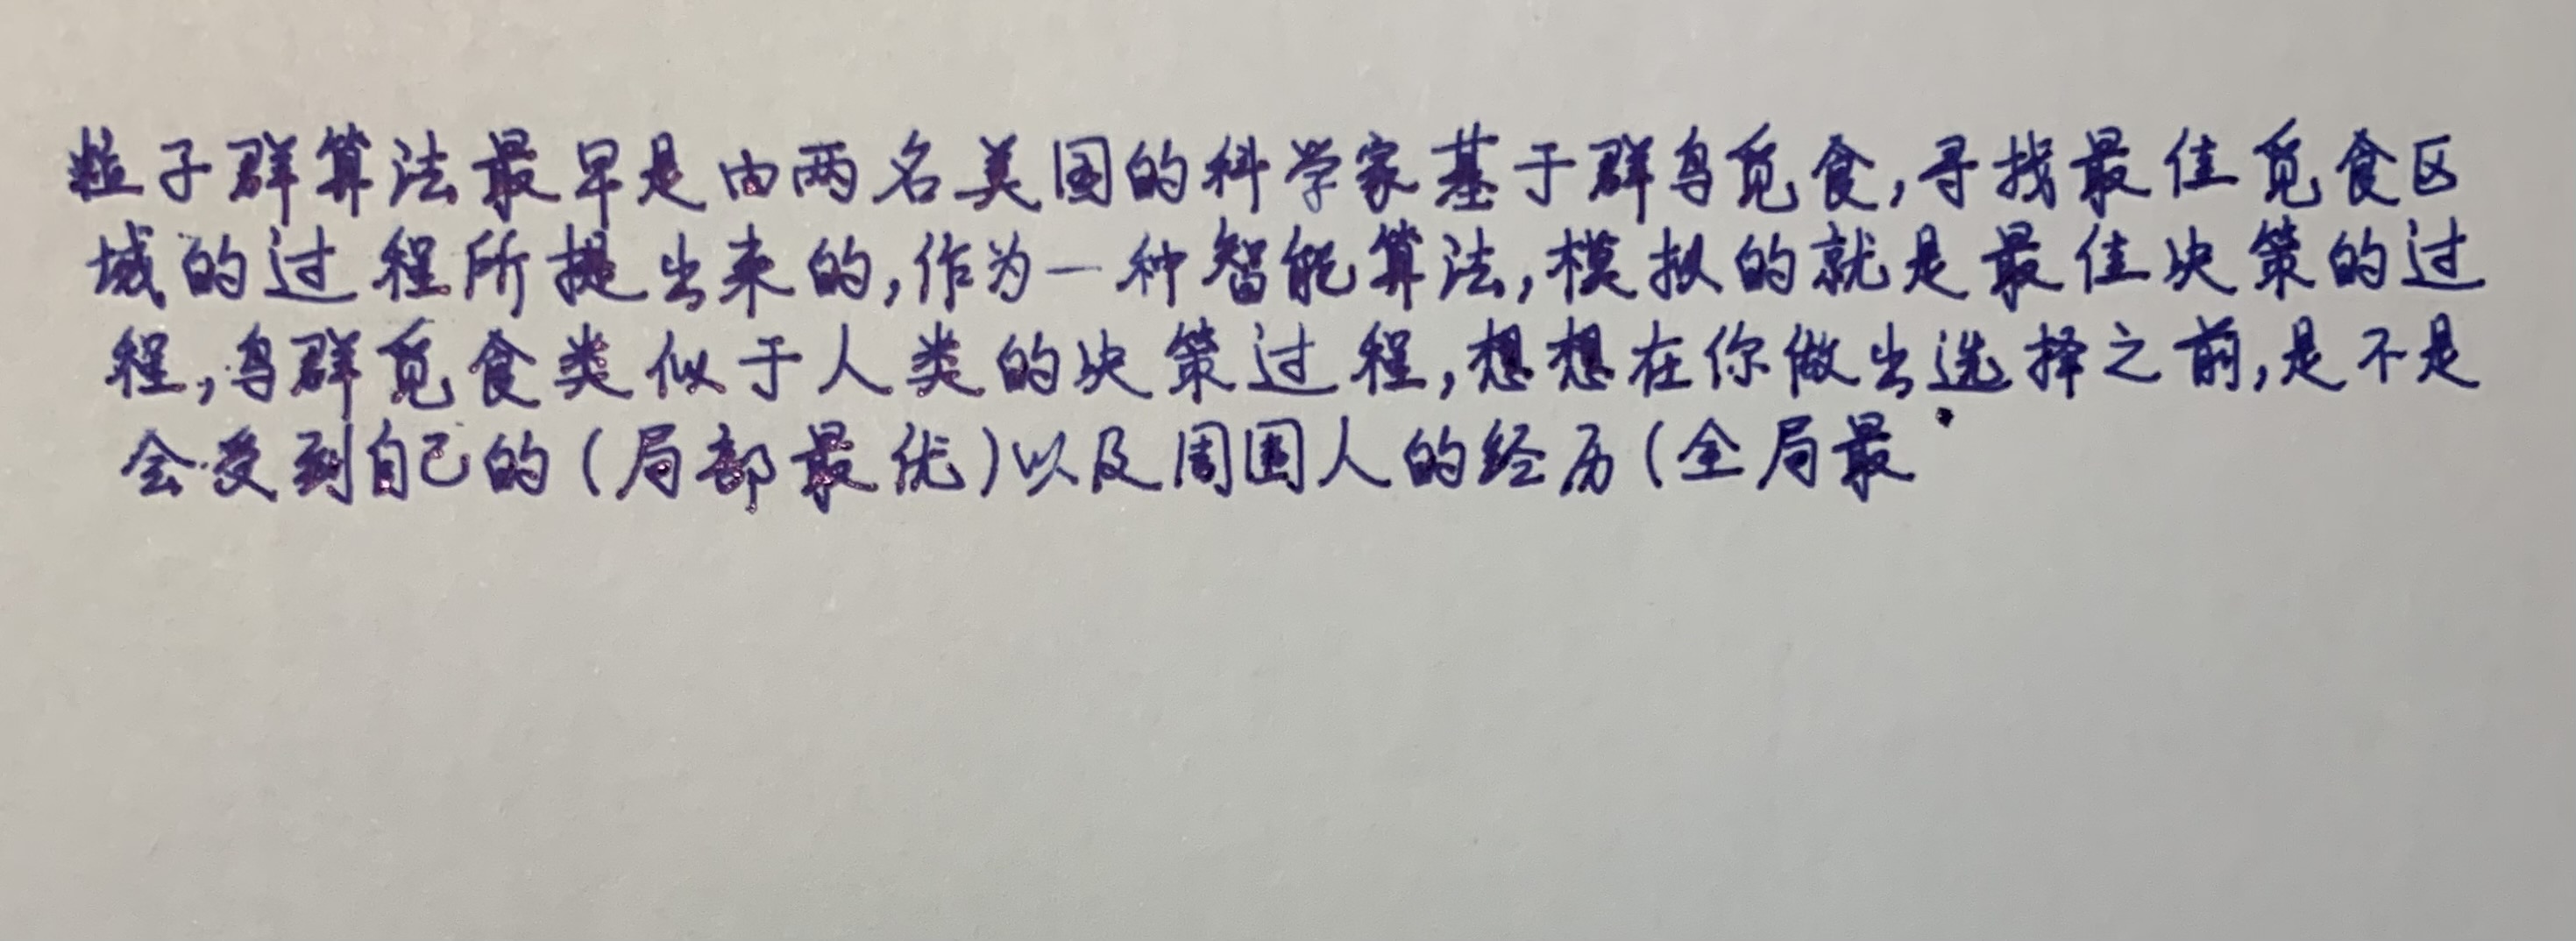 粒子群算法最早是由两名美国的科学家基于群鸟觅食,寻找最佳觅食区
域的过程所提出来的,作为一种智能算法,模拟的就是最佳决策的过
程,鸟群觅食类似于人类的决策过程,想想在你做出选择之前,是不是
会受到自己的(局部最优)以及周围人的经历(全局最